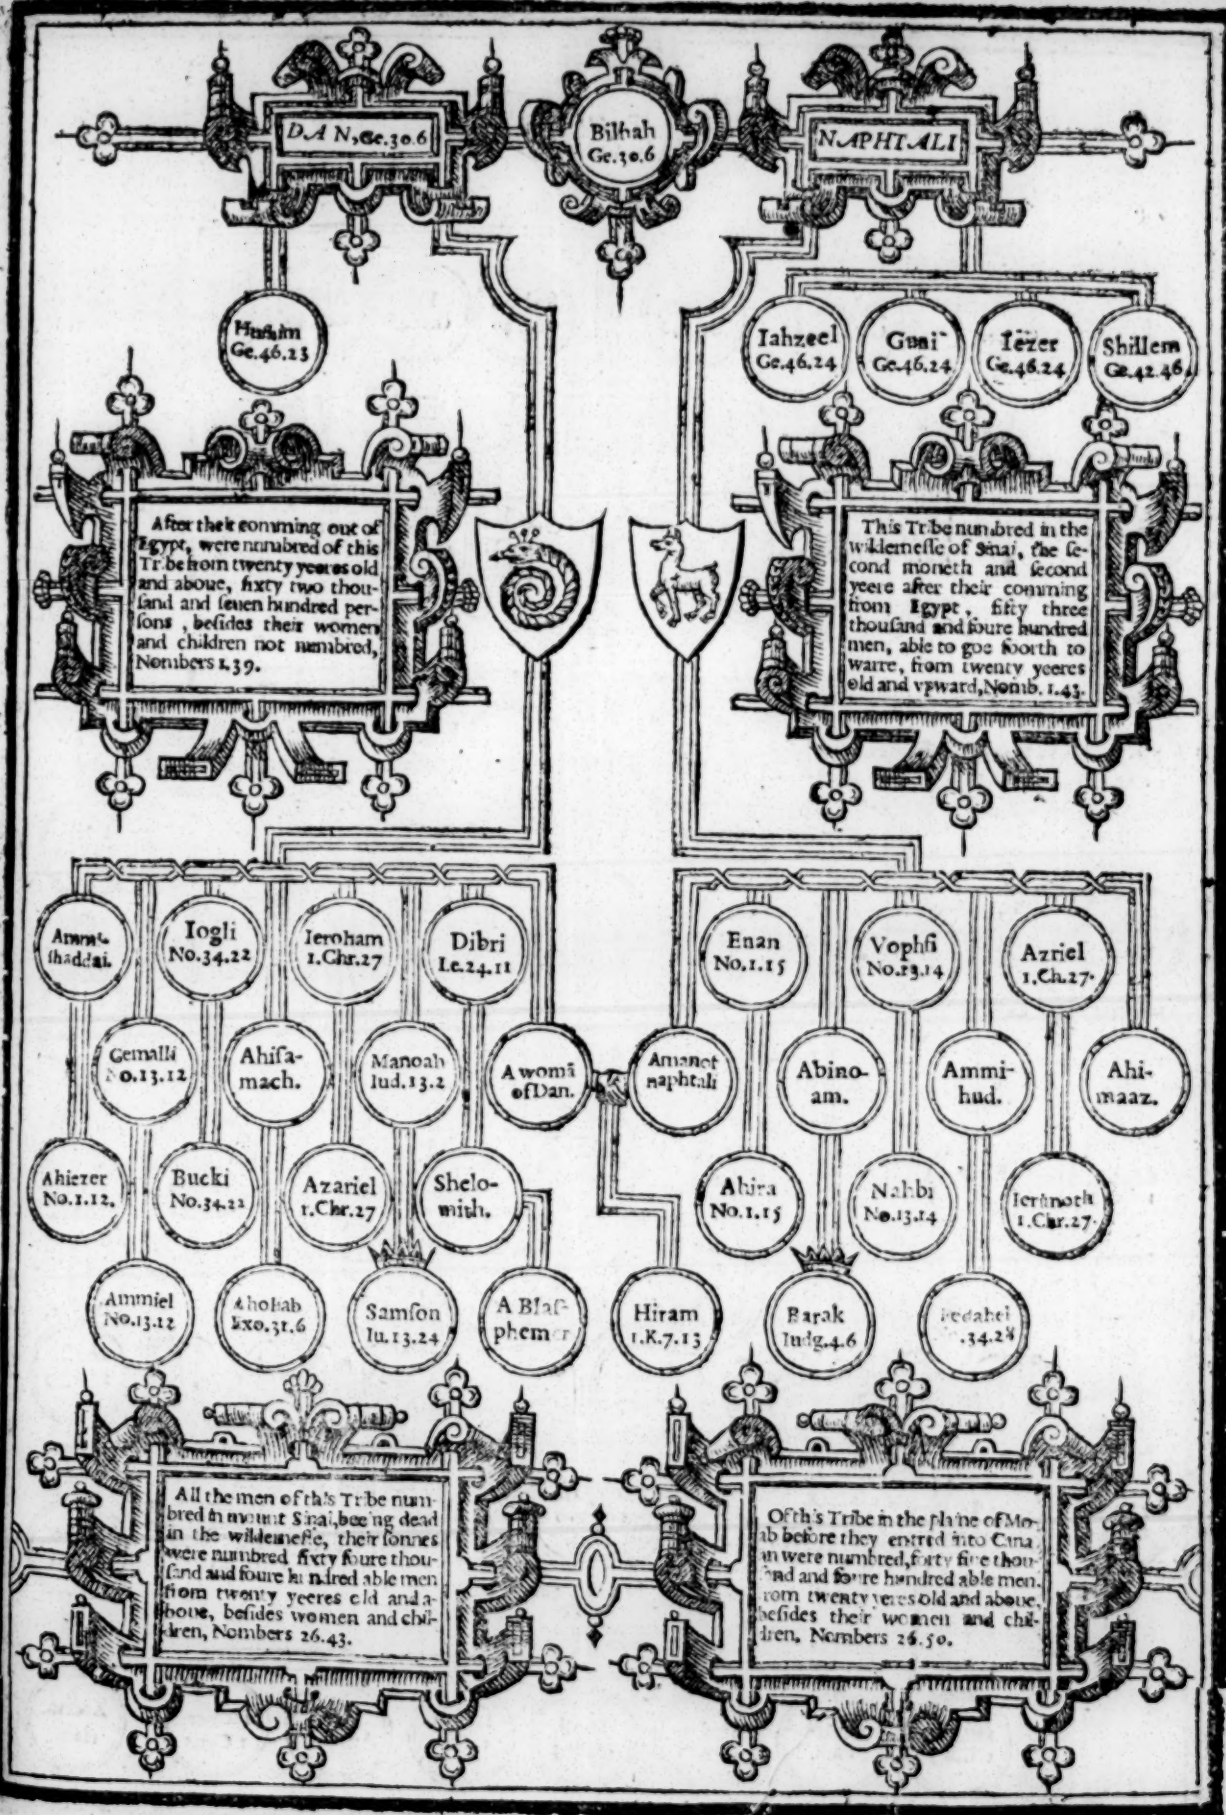 DAN, Ge.30.6
Bilhah
Ge.30.6
NAPHTALI
Hushim
Ge.46.23
Iahzeel
Ge.46.24
Guni
Ge.46.24
Iezer
Ge.46.24
Shillem
Ge.42.46.
After their comming out of
Egypt, were numbred of this
Tribe from twenty yeeres old
and aboue, ſixty two thou-
ſand and ſeuen hundred per-
ſons, beſides their women
and children not numbred,
Nombers 1.39.
This Tribe numbred in the
wilderneſſe of Sinai, the ſe-
cond moneth and ſecond
yeere after their comming
from Egypt, fifty three
thouſand and foure hundred
men, able to goe foorth to
warre, from twenty yeeres
old and vpward, Nomb. 1.43.
Ammi-
ſhaddai.
Iogli
No.34.22
Ieroham
1.Chr.27
Dibri
Le.24.11
Enan
No.1.15
Vophſi
No.13.14
Azriel
1.Ch.27.
Gemalli
No.13.12
Ahiſa-
mach.
Manoah
Iud.13.2
A womā
of Dan.
A man of
naphtali
Abino-
am.
Ammi-
hud.
Ahi-
maaz.
Ahiezer
No.1.12.
Bucki
No.34.22
Azariel
1.Chr.27
Shelo-
mith.
Ahira
No.1.15
Nahbi
No.13.14
Ierimoth
1.Chr.27.
Ammiel
No.13.12
Aholiab
Exo.31.6
Samſon
Iu.13.24
A Blaſ-
phemer
Hiram
1.K.7.13
Barak
Iudg.4.6
Pedahel
.34.28
All the men of this Tribe num-
bred in mount Sinai, beeing dead
in the wilderneſſe, their ſonnes
were numbred ſixty foure thou-
ſand and foure hundred able men
from twenty yeeres old and a-
boue, beſides women and chil-
dren, Nombers 26.43.
Of this Tribe in the plaine of Mo-
ab before they entred into Cana
an were numbred, forty fiue thou-
ſand and foure hundred able men.
from twenty yeres old and aboue,
beſides their women and chil-
dren. Nombers 26.50.